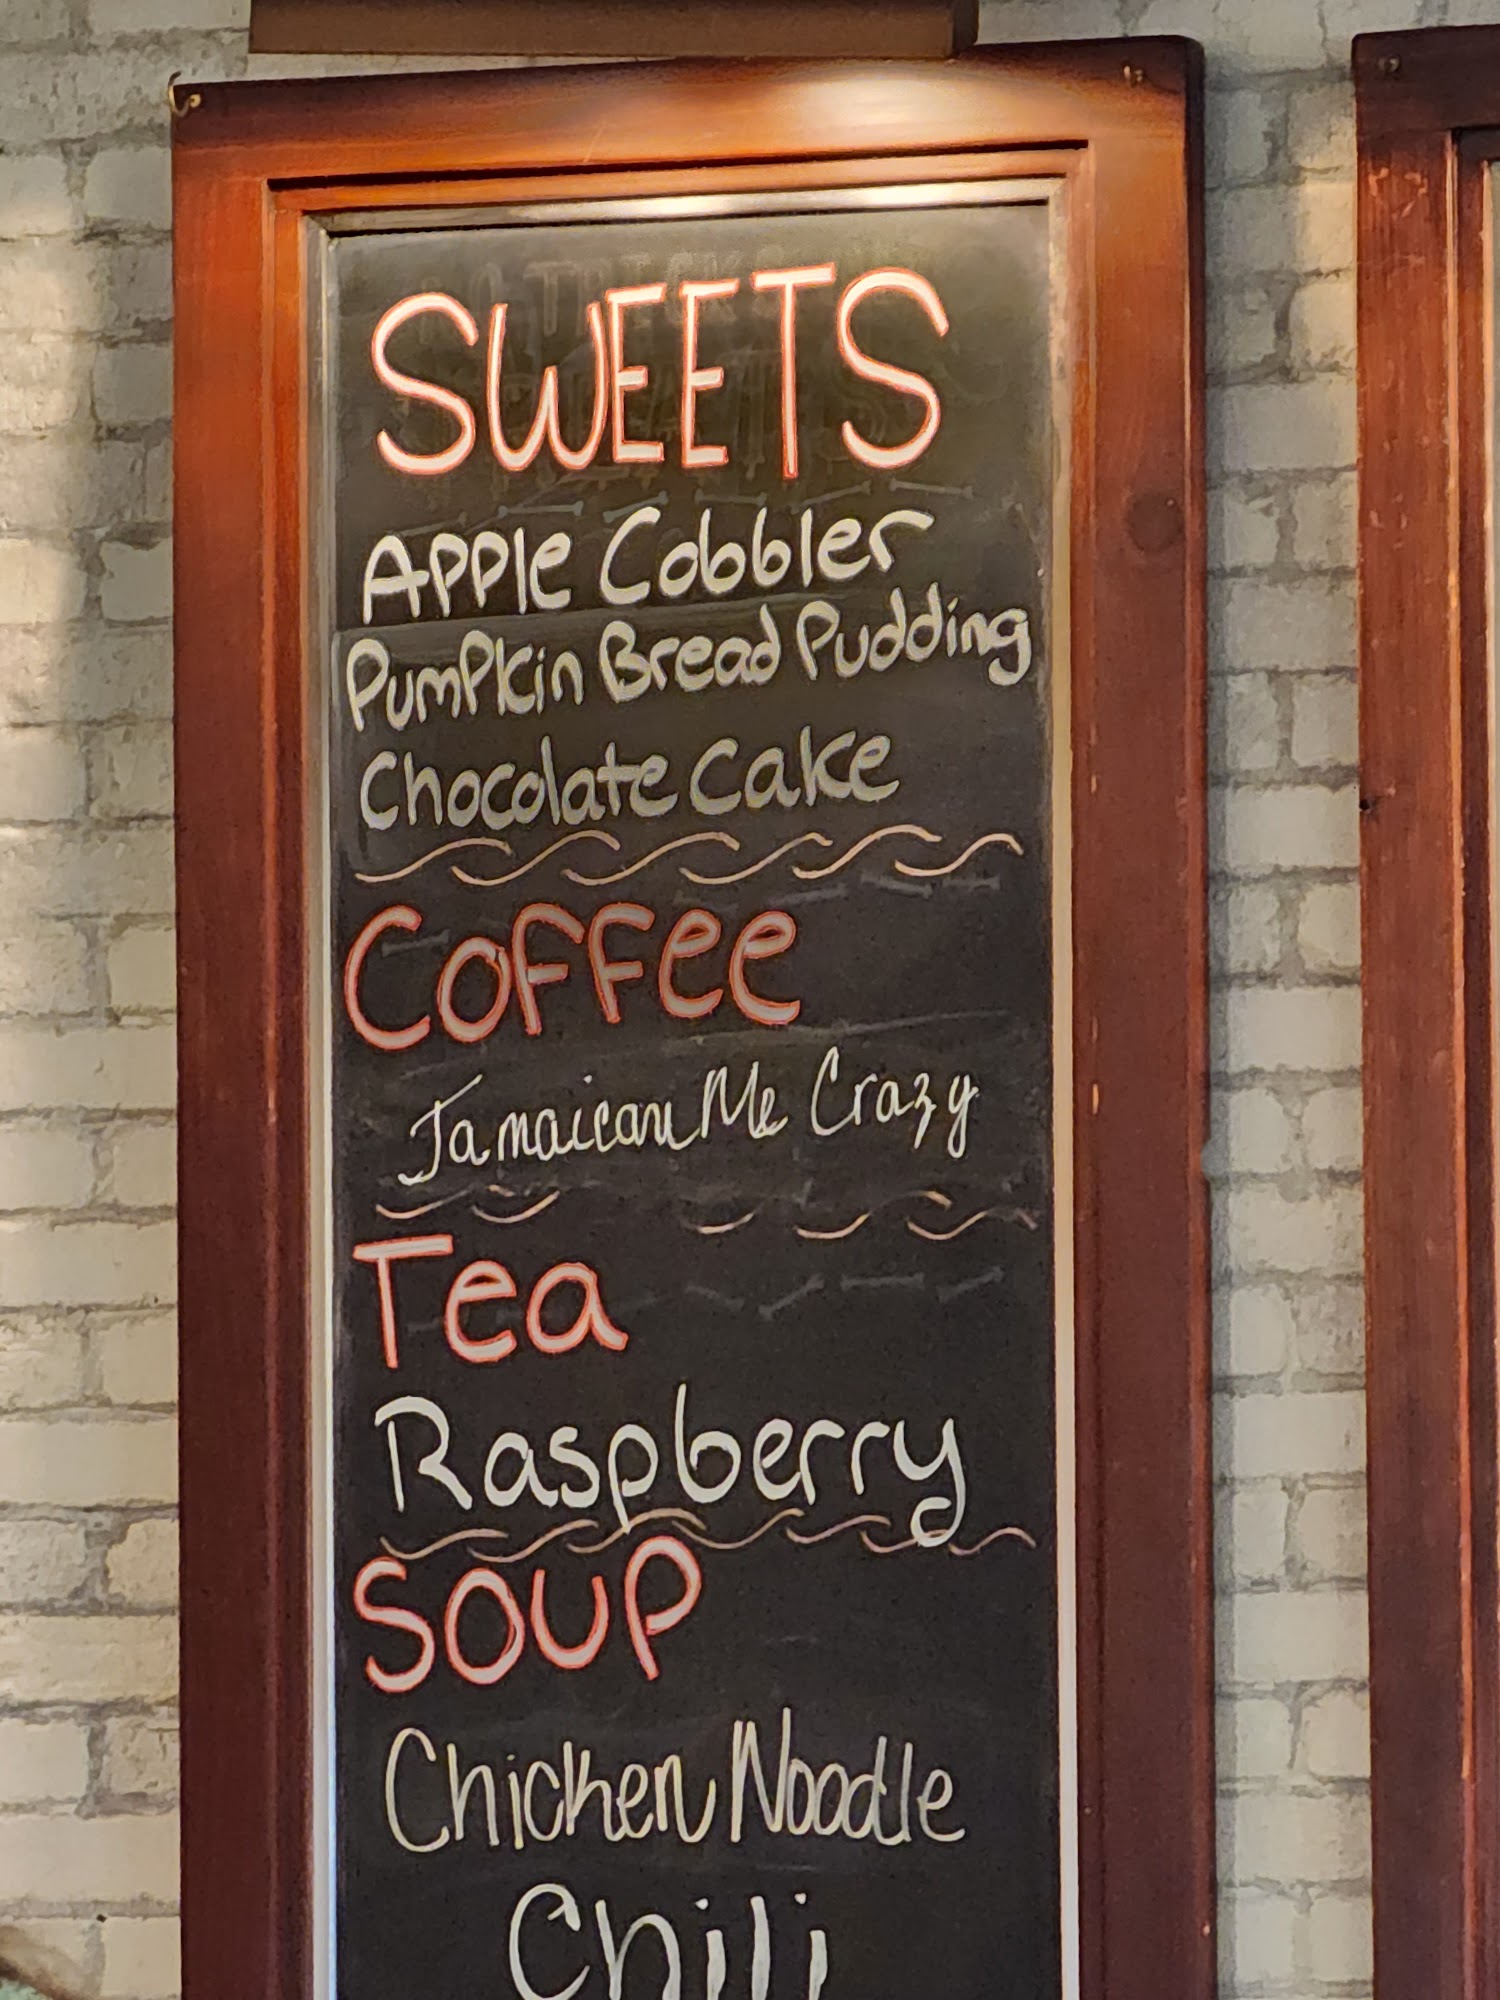 SWEETS
Apple Cobbler
Pumpkin Bread Pudding
Chocolate Cake
Coffee
Jamaican Me Crazy
Tea
Raspberry
SOUP
Chicken Noodle
Chili